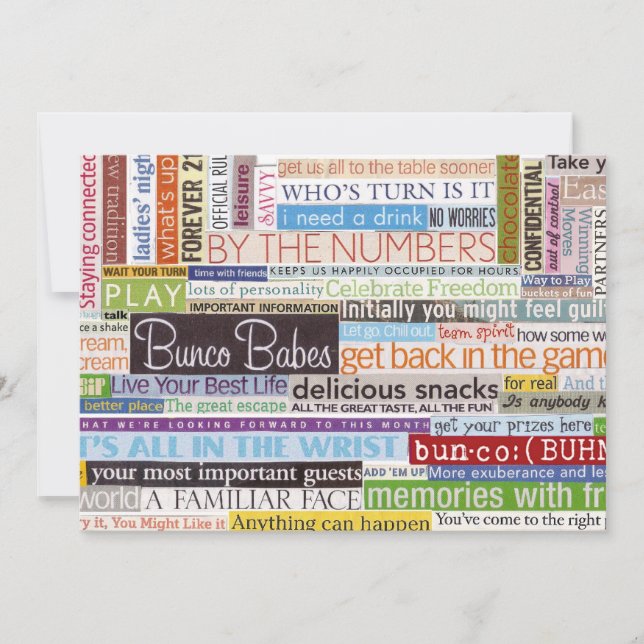 Staying connected
ew tradition
ladies' nigh
what's up
FOREVER 21
OFFICIAL RUL
leisure
SAVVY
get us all to the table sooner
WHO'S TURN IS IT
i need a drink
NO WORRIES
chocolate
CONFIDENTIAL
out of pocket
Take y
Eas
Winning
Moves
PARTNERS
BY THE NUMBERS
WAIT YOUR TURN
time with friends
KEEPS US HAPPILY OCCUPIED FOR HOURS
Way to Play
buckets of fun
PLAY
lots of personality
Celebrate Freedom
hugs
talk
IMPORTANT INFORMATION
Initially you might feel guil
ce a shake
ream,
cream.
Bunco Babes
Let go. Chill out.
team spirit
how some w
get back in the game
Live Your Best Life
delicious snacks
for real
And th
better place
The great escape
ALL THE GREAT TASTE, ALL THE FUN
Is anybody k
HAT WE'RE LOOKING FORWARD TO THIS MONTH
get your prizes here
te
'S ALL IN THE WRIST
bun·co:(BUHN
e your most important guests
ADD 'EM UP
More exuberance and les
world
A FAMILIAR FACE
memories with fr
ry it, You Might Like it
Anything can happen
You've come to the right